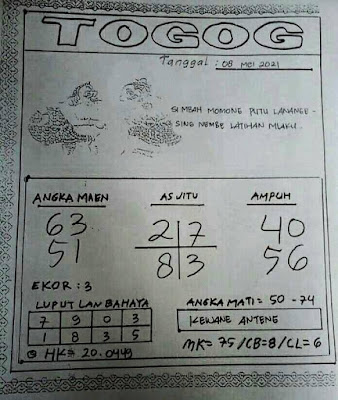 TOGOG
Tanggal : 08 MEI 2021
SIMBAH MOMONG PUTU LANANGE -
SING NEMBE LATIHAN MLAKU .
ANGKA MAEN
63
51
AS JITU
2 7
8 3
AMPUH
40
56
EKOR : 3
LUPUT LAN BAHAYA
7 9 0 3
1 8 3 5
HK = 20.0443
ANGKA MATI = 50 - 74
KEWANE ANTENE
MK = 75 / CB = 8 / CL = 6